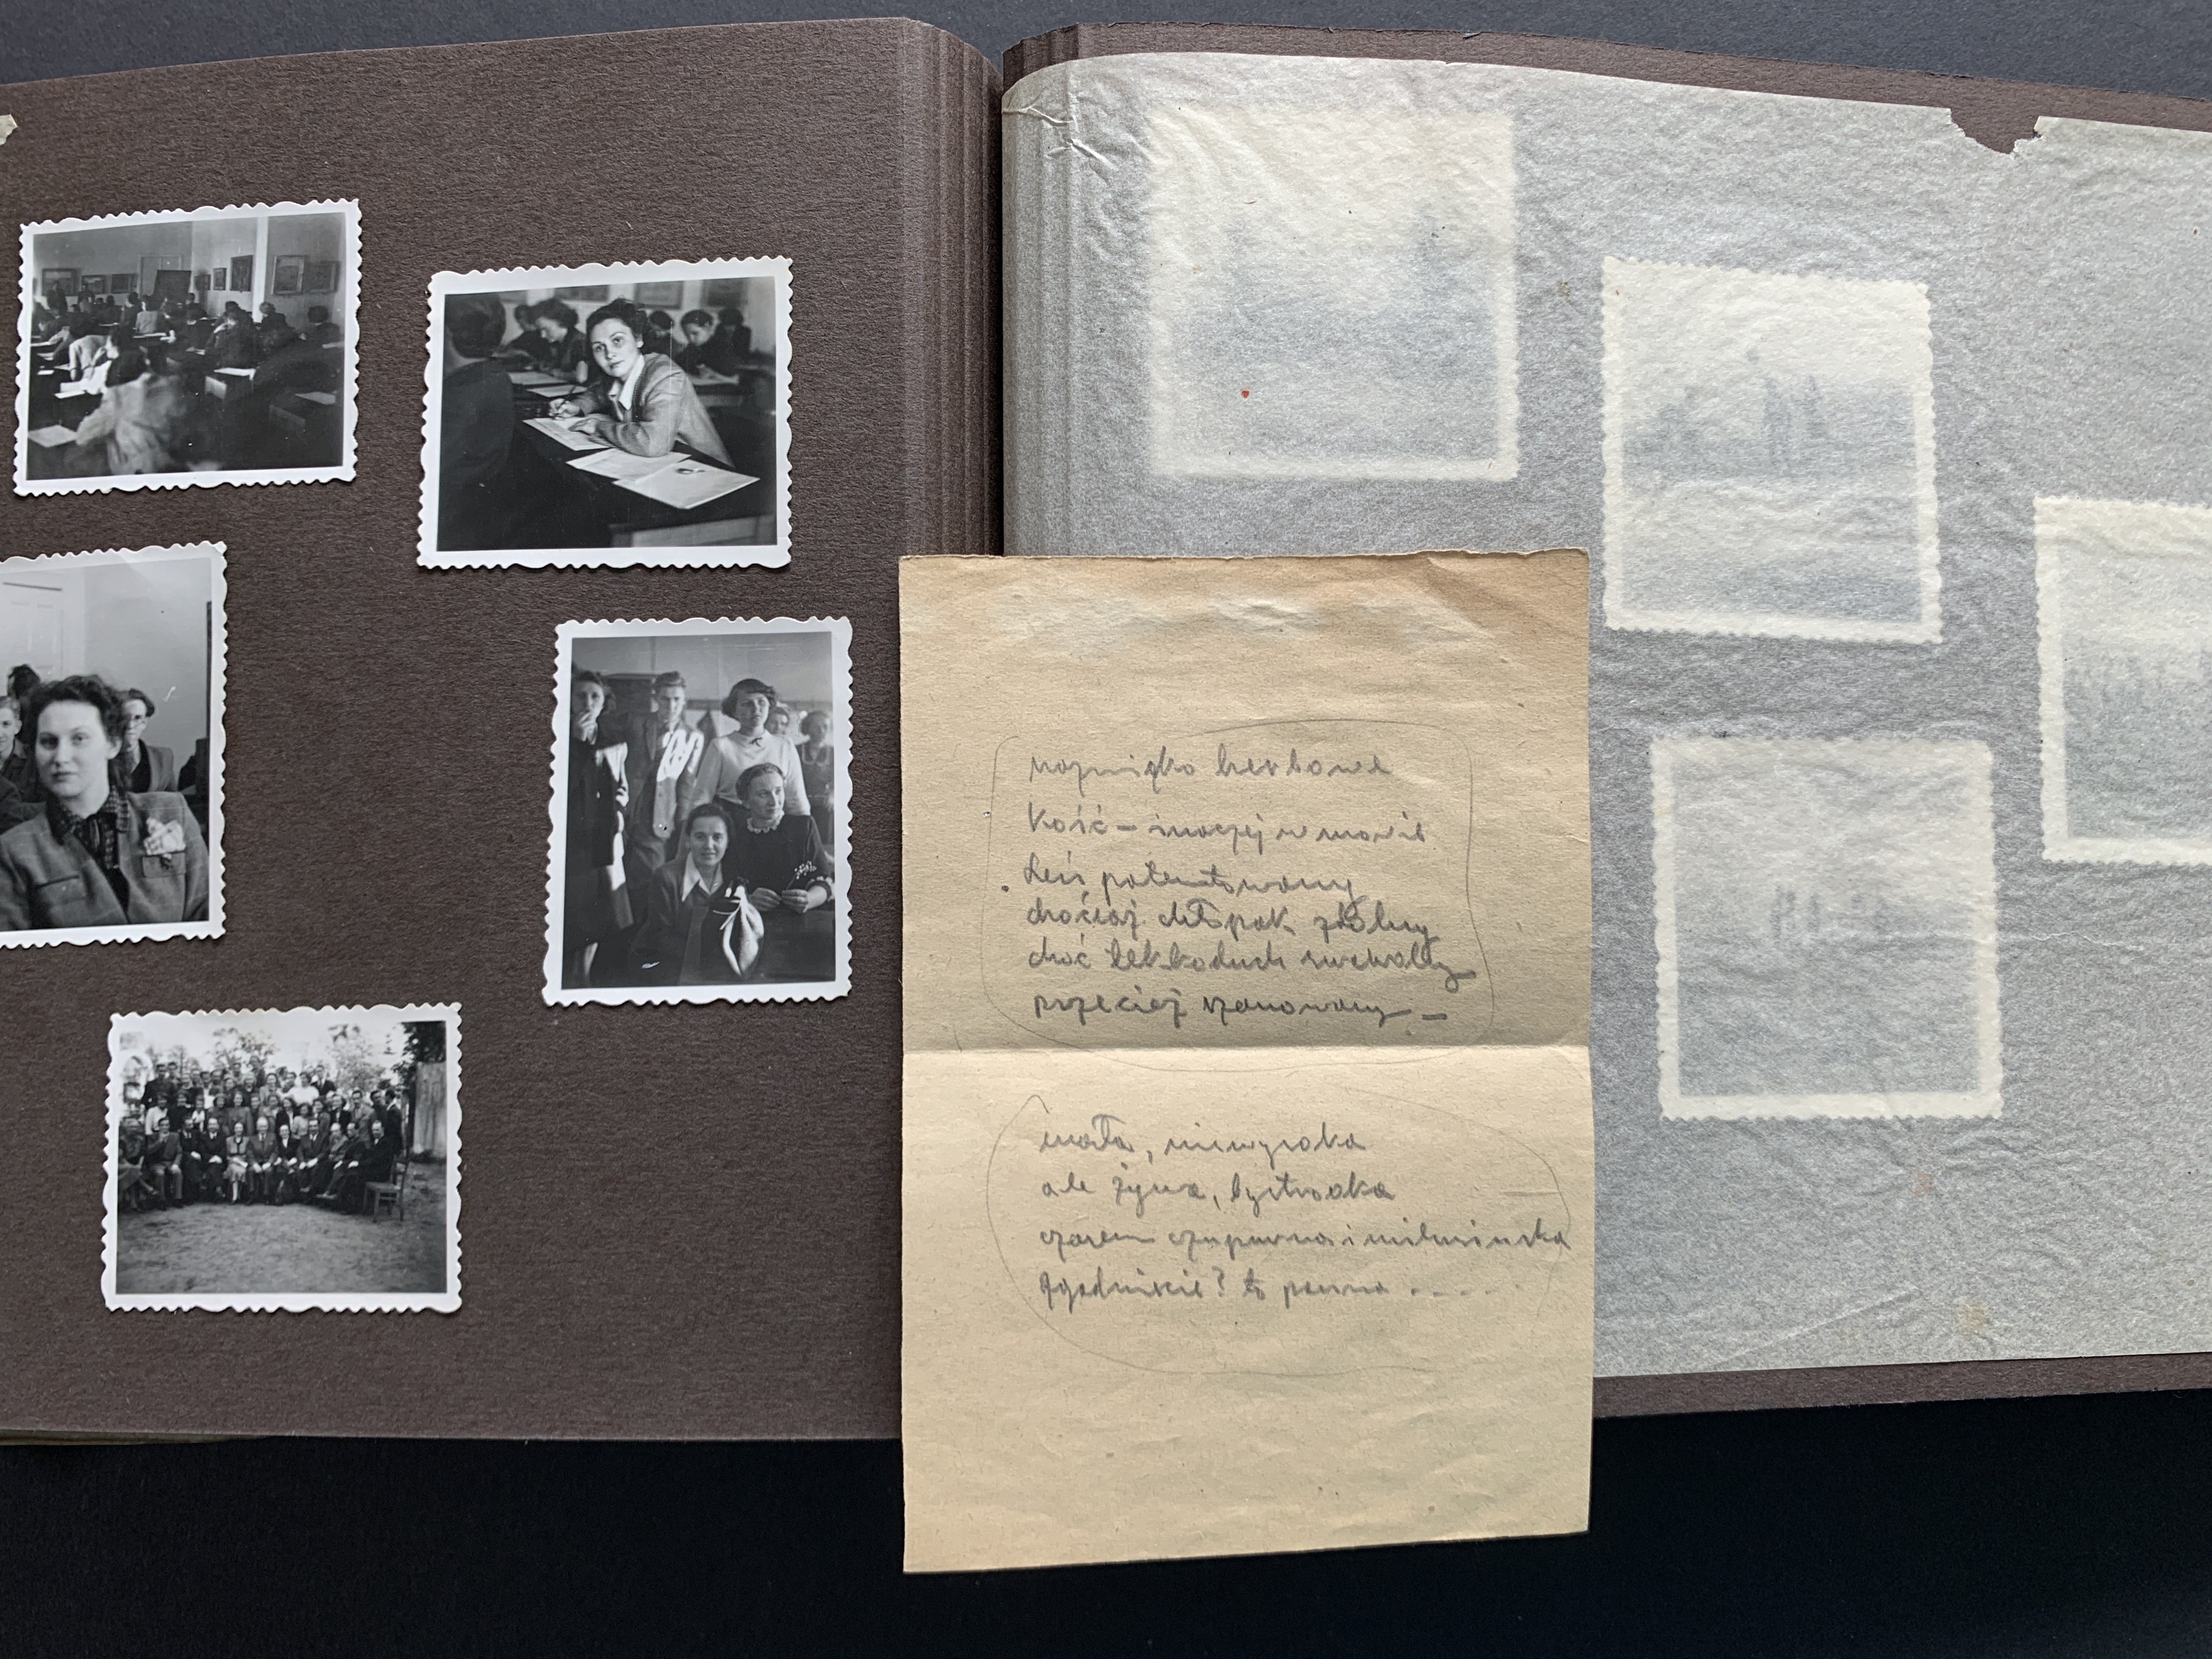 nazwisko herbowe
Kość – inaczej w mowie
Leń patentowany
chociaż chłopak zdolny
choć lekkoduch
przecież szanowany –
mała, niewysoka
ale żywa, bystrooka
czasem czupurna i milusińska
Zgadniecie? to panna . . . . .